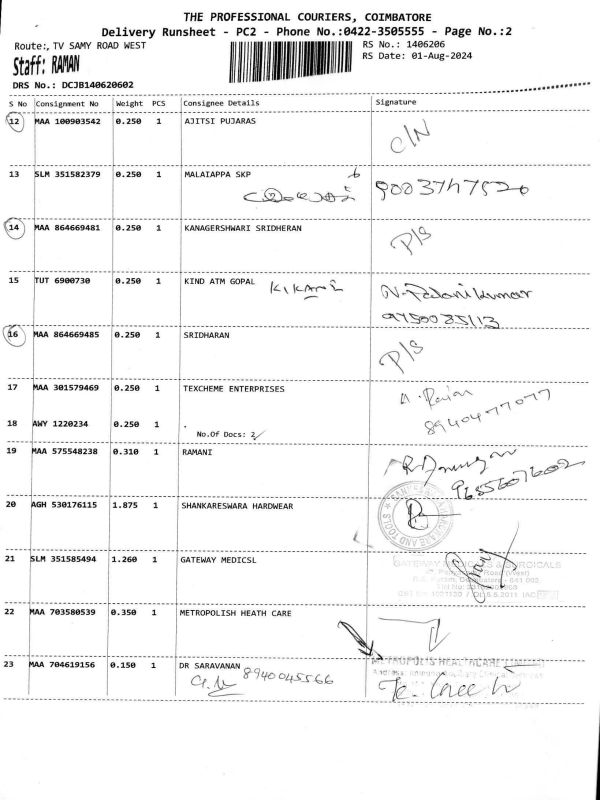 THE PROFESSIONAL COURIERS, COIMBATORE
Delivery Runsheet - PC2 - Phone No.:0422-3505555 - Page No.:2
Route:, TV SAMY ROAD WEST
RS No.: 1406206
Staff: RAMAN
RS Date: 01-Aug-2024
DRS No.: DCJB140620602
S No Consignment No Weight PCS Consignee Details Signature
12 MAA 100903542 0.250 1 AJITSI PUJARAS C/N
13 SLM 351582379 0.250 1 MALAIAPPA SKP
14 MAA 864669481 0.250 1 KANAGERSHWARI SRIDHERAN P/S
15 TUT 6900730 0.250 1 KIND ATM GOPAL
N. Palanikumar
9750035113
16 MAA 864669485 0.250 1 SRIDHARAN P/S
17 MAA 301579469 0.250 1 TEXCHEME ENTERPRISES
8940477077
18 AWY 1220234 0.250 1 .
No.Of Docs: 2
19 MAA 575548238 0.310 1 RAMANI
9655607602
20 AGH 530176115 1.875 1 SHANKARESWARA HARDWEAR
21 SLM 351585494 1.260 1 GATEWAY MEDICSL
22 MAA 703580539 0.350 1 METROPOLISH HEATH CARE
METROPOLIS HEALTHCARE LIMITED
23 MAA 704619156 0.150 1 DR SARAVANAN
8940045566